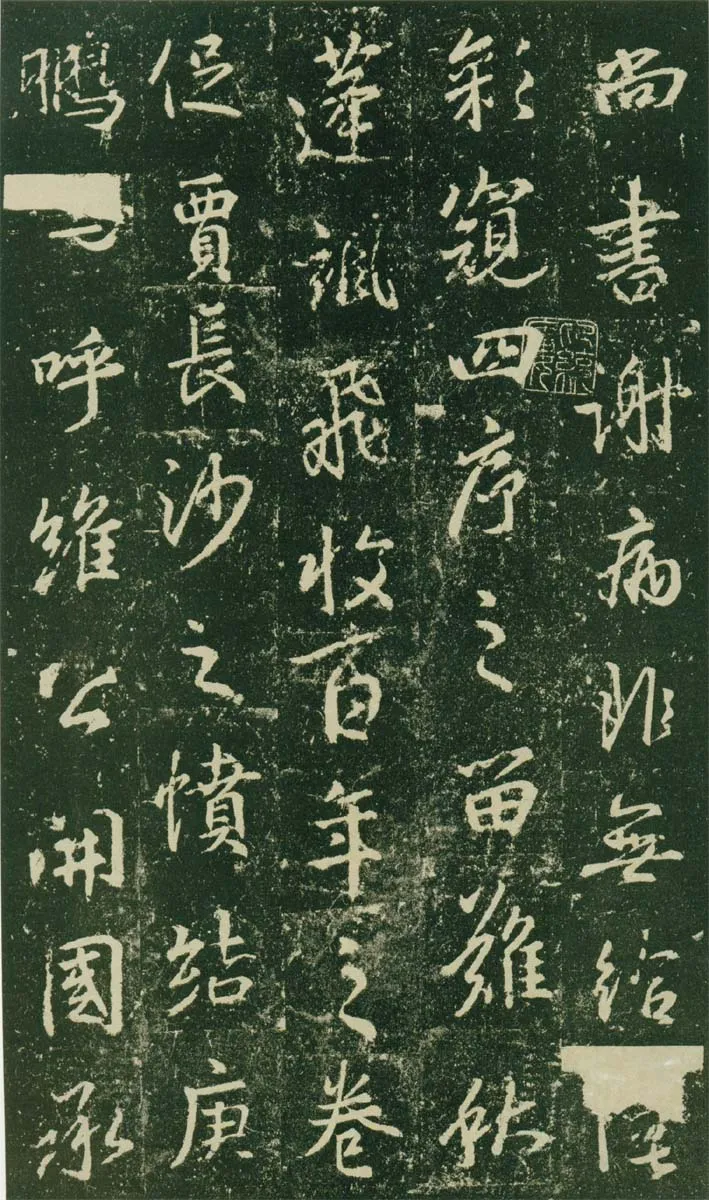 尚書謝病非無給
彩窺四序之留難秋
蓬飛收百年之卷
促賈長沙之憤結庚
鵩呼維公開國承